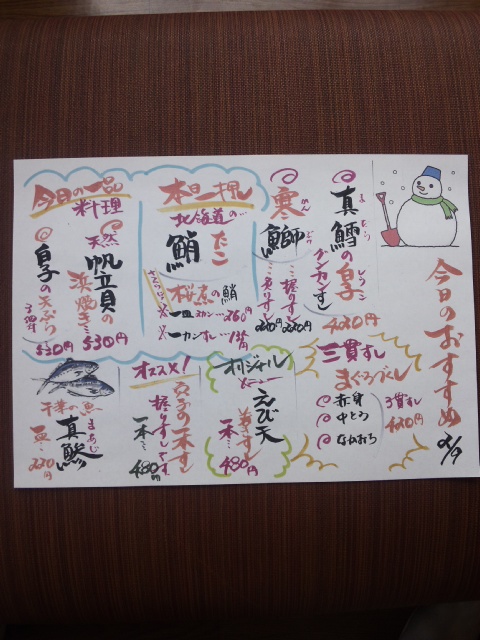 今日のおすすめ
2/9
真鱈の白子
まだら
しらこ
グンカンすし
420円
寒鰤
かん
ぶり
握りずし
本日一押し
北海道の
たこ
鮹
桜煮の鮹
さくらに
一皿 2カン… 260円
一カンすし… 130円
今日の一品
料理
天然
帆立貝の
浜焼き… 530円
白子の天ぷら
530円
三貫すし
まぐろづくし
赤身
中とろ
なかおち
3貫すし
420円
オリジナル
メニュー
えび天
一本…
480円
オススメ!
穴子の一本すし
握りずしです。
一本…
480円
千葉の魚
まあじ
真鯵
一貫… 220円